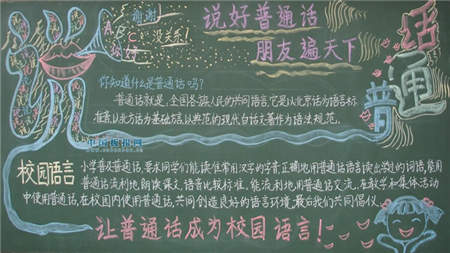 谢谢
没关系!
ABC
说好普通话
朋友遍天下
话
通
普
你知道什么是普通话吗?
普通话就是,全国各族人民的共同语言,它是以北京话为语言标
准音,以北方话为基础方言,以典范的现代白话文著作为语法规范.
校园语言
小学普及普通话,要求同学们能读准常用汉字的字音,正确地用普通话语言读出学过的词语,能用
普通话流利地朗读课文,语音比较标准,能流利地用普通话交流,在教学和集体活动
中使用普通话,在校园内使用普通话,共同创造良好的语言环境,最后我们共同倡仪
让普通话成为校园语言!